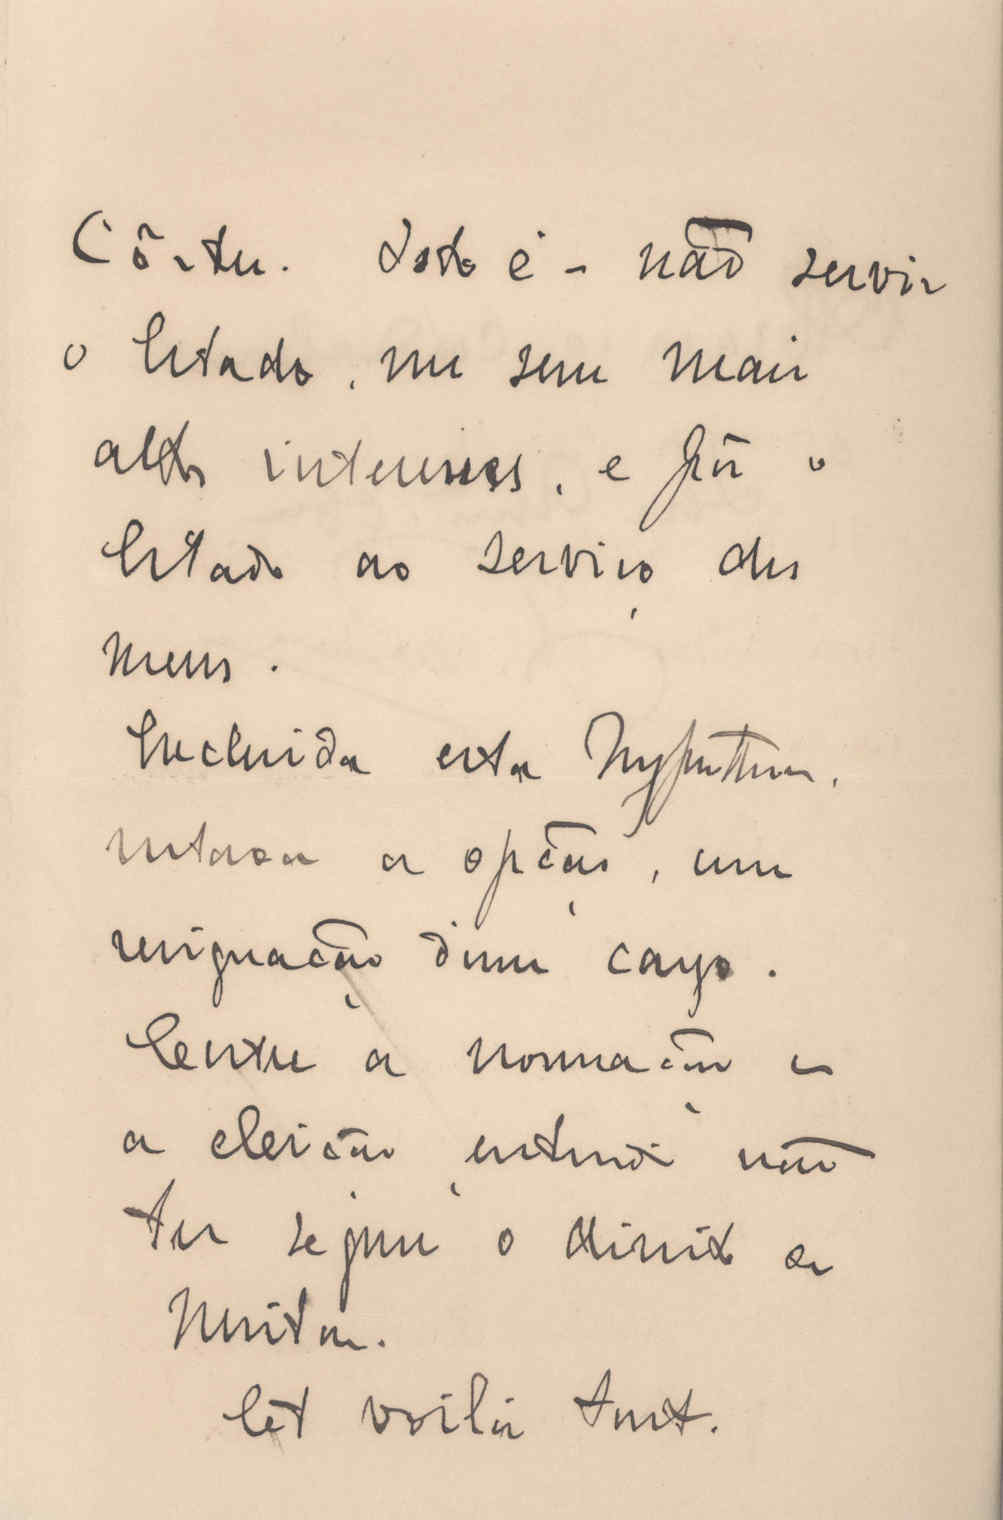 Côrtes. Isto é – não servir
o Estado, nos seus mais
altos interesses, e pôr o
Estado ao serviço dos
meus.
Excluida esta hypothese,
restava a opção, uma
resignação d'um cargo.
Entre a nomeação e
a eleição, entendi não
ter sequer o direito de
hesitar.
Et voilà tout.